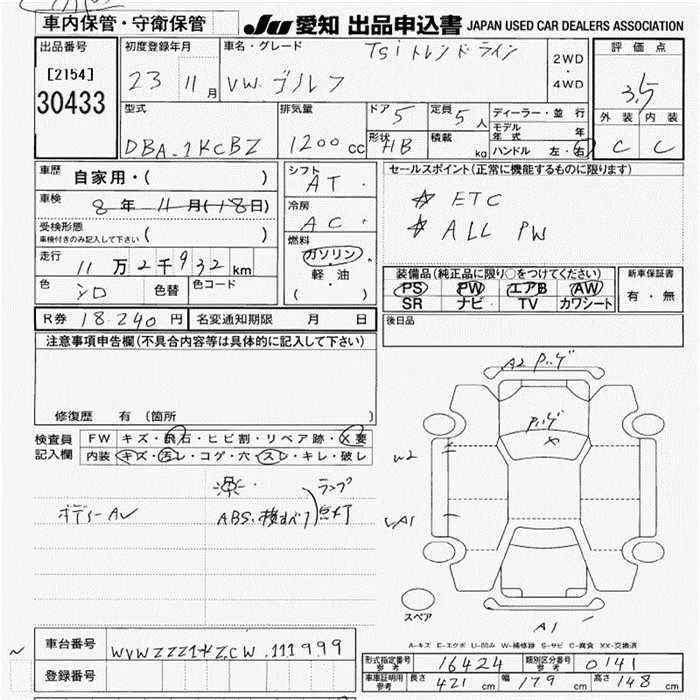 車内保管・守衛保管
JU 愛知 出品申込書 JAPAN USED CAR DEALERS ASSOCIATION
出品番号
[2154]
30433
初度登録年月
23 11月
車名・グレード
Tsi トレンドライン
VW. ゴルフ
2WD
・
4WD
評価点
3.5
外装 内装
C C
型式
DBA-1KCBZ
排気量
1200cc
ドア 5
形状 HB
定員 5人
積載 kg
ディーラー・並行
モデル年式 年
ハンドル 左・右
車歴
自家用・( )
車検
8年 11月(18日)
受検形態
車検付きのみ記入して下さい ( )
走行
11万2千932km
色 シロ 色替 色コード
シフト
AT
冷房
AC
燃料
ガソリン
・
軽・油
( )
セールスポイント(正常に機能するものに限ります)
☆ ETC
☆ ALL PW
装備品(純正品に限り○をつけてください)
PS PW エアB AW
SR ナビ TV カワシート
新車保証書
有・無
R券 18.240円 名変通知期限 月 日
後日品
注意事項申告欄(不具合内容等は具体的に記入して下さい)
修復歴 有 〔箇所 〕
検査員
記入欄
FW キズ・飛石・ヒビ割・リペア跡・X要
内装 キズ・汚レ・コゲ・穴・スレ・キレ・破レ
ボディーAU
ABS.横すべり
ランプ
点灯
A2
W2
A1
A1
スペア
A-キズ E-エクボ U-凹み W-補修跡 S-サビ C-腐食 XX-交換済
車台番号 WVWZZZ1KZCW111999
登録番号
形式指定番号 参考 16424 類別区分番号 参考 0141
車庫証明用 参考 長さ 421cm 幅 179cm 高さ 148cm